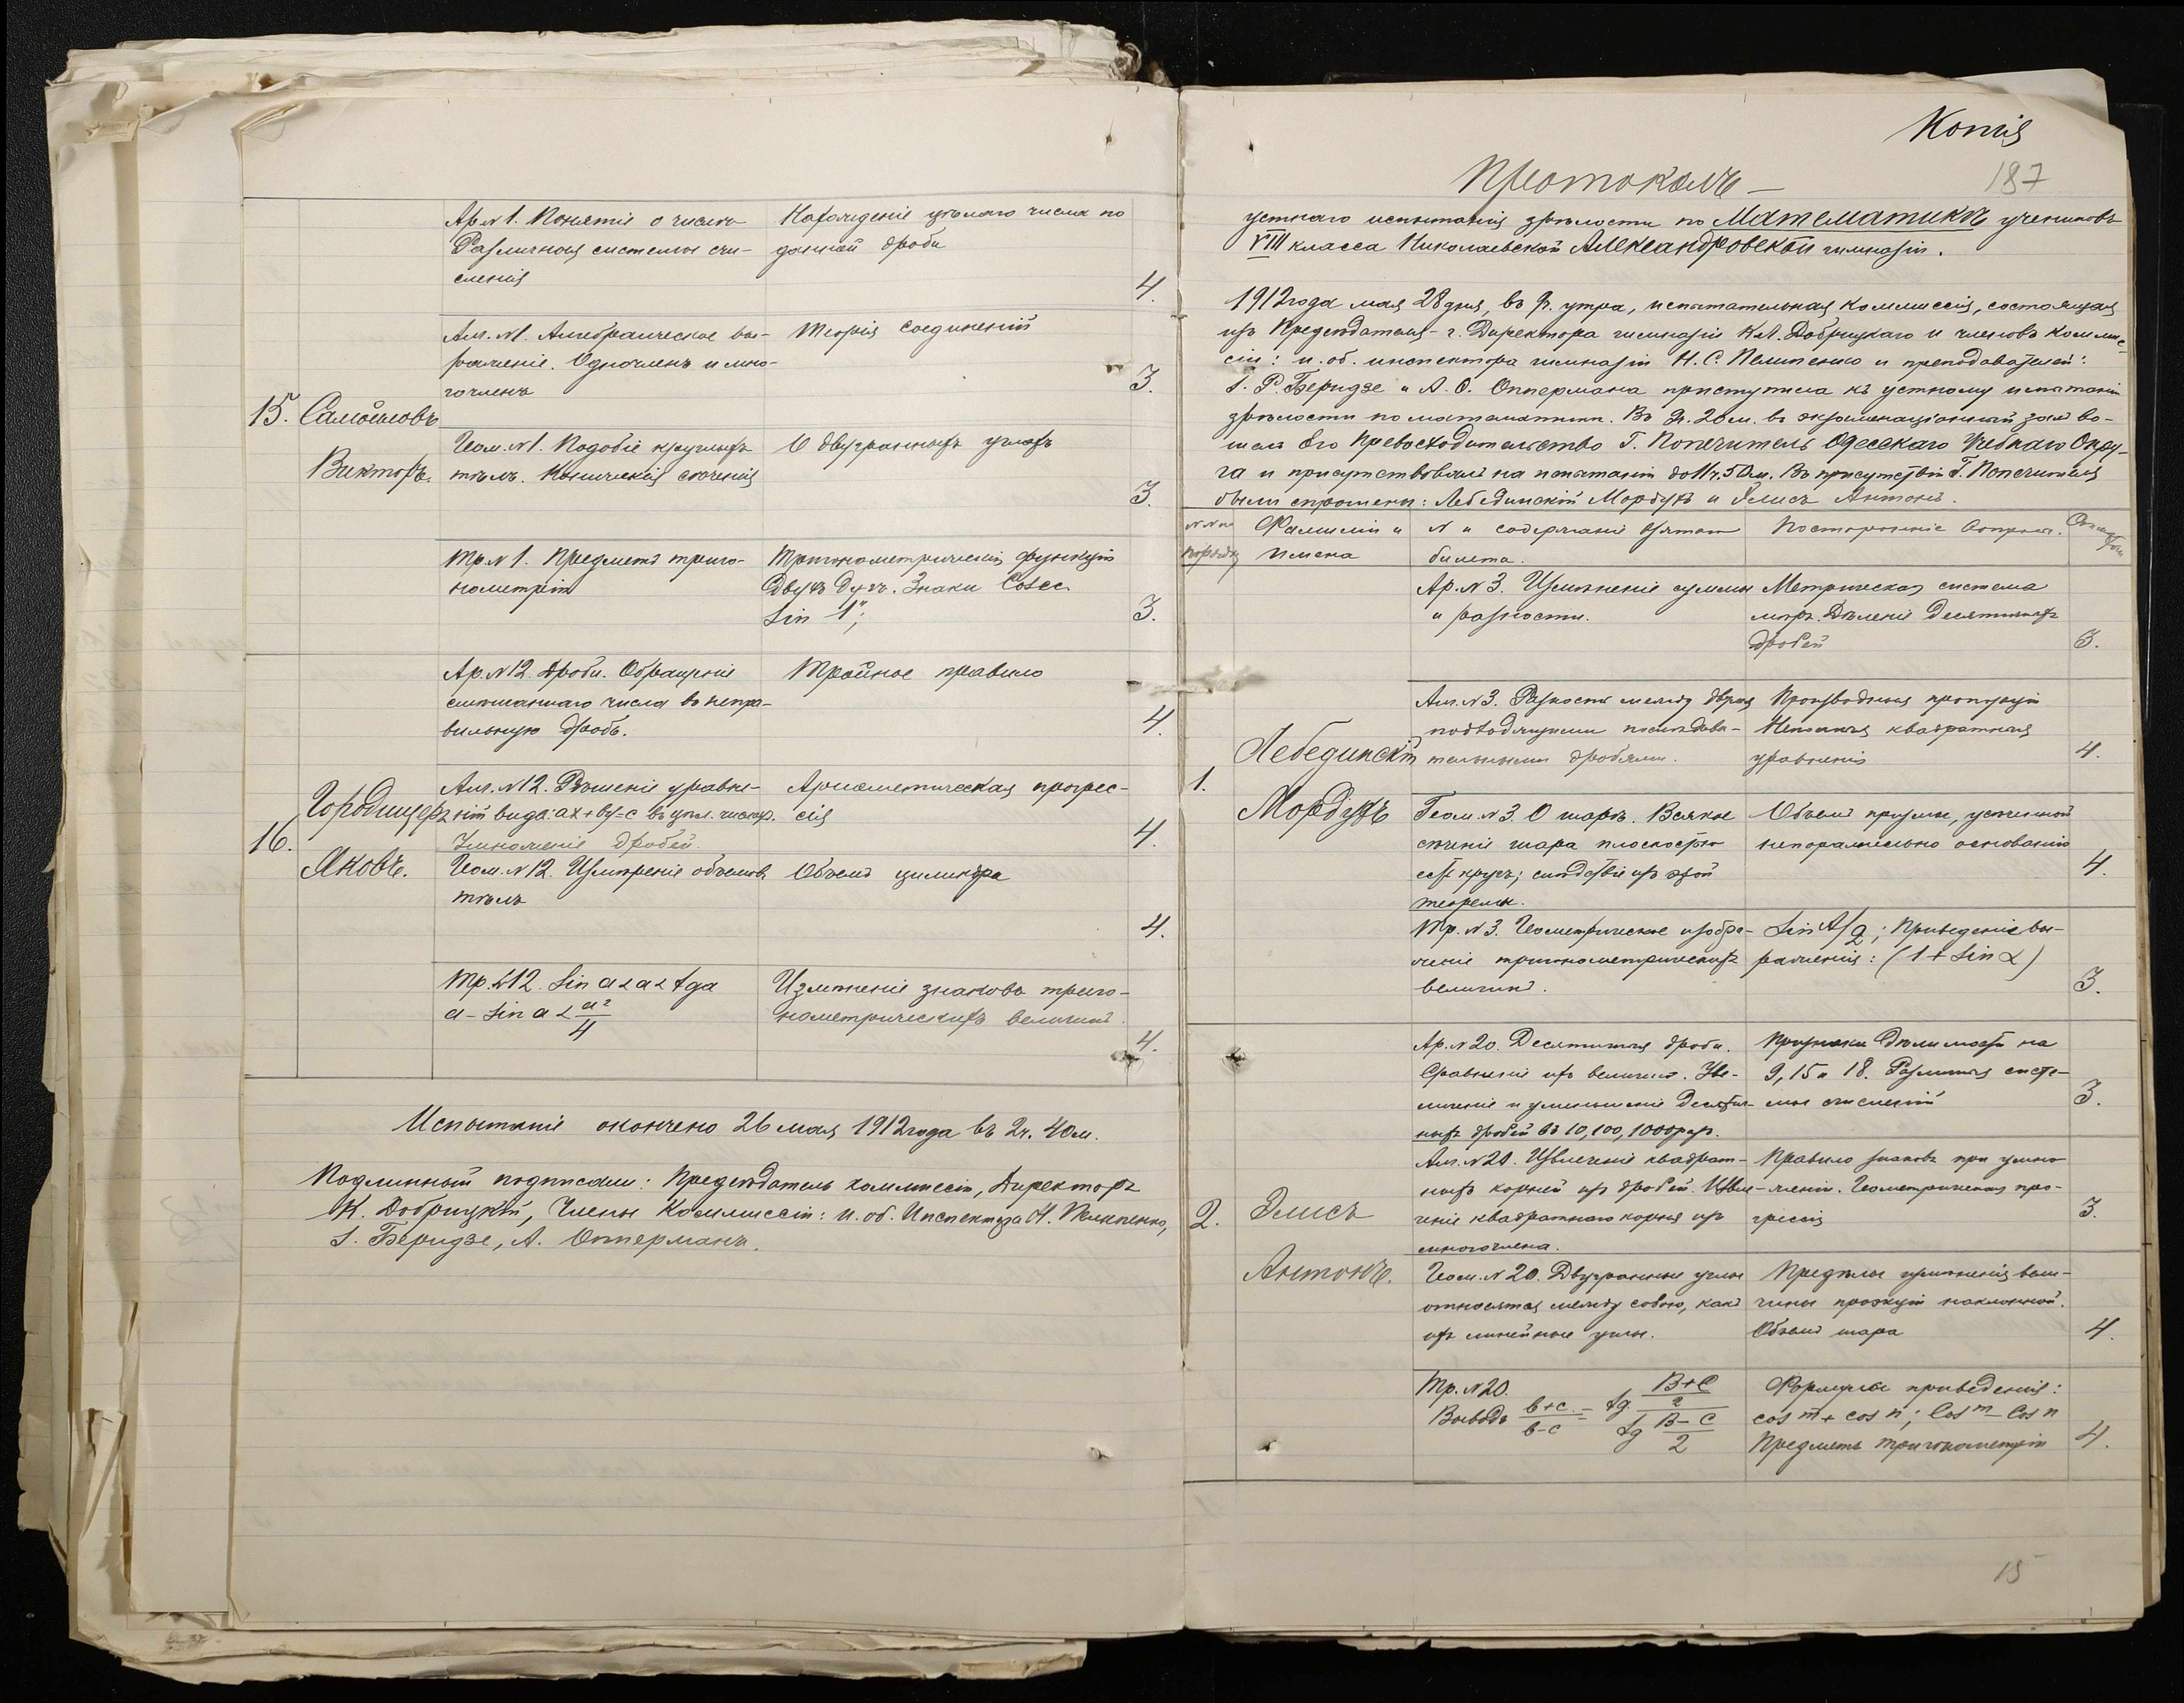 Ар. №1. Понятіе о числѣ
Различныя системы счи-
сленія
Нахожденіе цѣлаго числа по
данной дроби
4.
Алг. №1. Алгебраическое вы-
раженіе. Одночленъ и мно-
гочленъ
Теорія соединеній
3.
15. Самойловъ
Викторъ.
Геом. №1. Подобіе круглыхъ
тѣлъ. Коническія сѣченія
О двугранныхъ углахъ
3.
Тр. №1. Предметъ триго-
нометріи
Тригонометрическія функціи
двухъ дугъ. Знаки Cosec.
Sin 1";
3.
Ар. №12. Дроби. Обращеніе
смѣшаннаго числа въ непра-
вильную дробь.
Тройное правило
4.
16.
Городищеръ
Яковъ.
Алг. №12. Рѣшеніе уравне-
ній вида: ax+by=c въ цѣл. числахъ.
Умноженіе дробей.
Ариѳметическая прогрес-
сія
4.
Геом. №12. Измѣреніе объемовъ
тѣлъ
Объемъ цилиндра
4.
Тр. №12. Sin a < a < tg a
a - Sin a < a²/4
Измѣненіе знаковъ триго-
нометрическихъ величинъ.
4.
Испытаніе окончено 26 мая 1912 года въ 2ч. 40м.
Подлинный подписали: Предсѣдатель коммиссіи, Директоръ
К. Добрицкій, Члены Коммиссіи: и. об. Инспектора Н.
І. Беридзе, А. Опперманъ.
Копія
187
Протоколъ —
устнаго испытанія зрѣлости по Математикѣ учениковъ
VIII класса Николаевской Александровской гимназіи.
1912 года мая 28 дня, въ 9ч. утра, испытательная Коммиссія, состоящая
изъ Предсѣдателя - г. Директора гимназіи Добрицкаго и членовъ Коммис-
сіи: и. об. инспектора гимназіи Н. С. и преподавателей:
І. Р. Беридзе и А. О. Оппермана приступила къ устному испытанію
зрѣлости по математикѣ. Въ 20 м. въ экзаменаціонный залъ во-
шелъ Его Превосходительство Г. Попечитель Одесскаго Учебнаго Окру-
га и присутствовалъ на испытаніи до 11ч. 50м. Въ присутствіи Г. Попечителя
были спрошены: Лебединскій Мордухъ и Элисъ Антонъ.
№№ по
порядку
Фамиліи и
имена
№ и содержаніе взятаго
билета.
Посторонніе вопросы.
Ар. №3. Измѣненіе суммы
и разности.
Метрическая система
мѣръ. Дѣленіе десятичныхъ
дробей
3.
Алг. №3. Разность между двумя
подходящими послѣдова-
тельными дробями.
Производныя пропорціи
Неполныя квадратныя
уравненія
4.
1.
Лебединскій
Мордухъ
Геом. №3. О шарѣ. Всякое
сѣченіе шара плоскостью
есть кругъ; слѣдствіе изъ этой
теоремы.
Объемъ призмы, усѣченной
непараллельно основанію
4.
Тр. №3. Геометрическое изобра-
женіе тригонометрическихъ
величинъ.
Sin A/2; Приведеніе вы-
раженія: (1 + Sin α)
3.
Ар. №20. Десятичныя дроби.
Сравненіе ихъ величинъ. Уве-
личеніе и уменьшеніе десятич-
ныхъ дробей въ 10, 100, 1000 разъ.
Признаки дѣлимости на
9, 15 и 18. Различныя систе-
мы счисленій
3.
Алг. №20. Извлеченіе квадрат-
ныхъ корней изъ дробей. Извле-
ченіе квадратнаго корня изъ
многочлена.
Правило знаковъ при умно-
женіи. Геометрическая про-
грессія
3.
2.
Элисъ
Антонъ.
Геом. №20. Двугранные углы
относятся между собою, какъ
ихъ линейные углы.
Предѣлы измѣненія вели-
чины проэкціи наклонной.
Объемъ шара
4.
Тр. №20.
Выводъ b+c/b-c = tg B+C/2 / tg B-C/2
Формулы приведенія:
cos m + cos n; Cos m - Cos n
Предметъ тригонометріи
4.
15